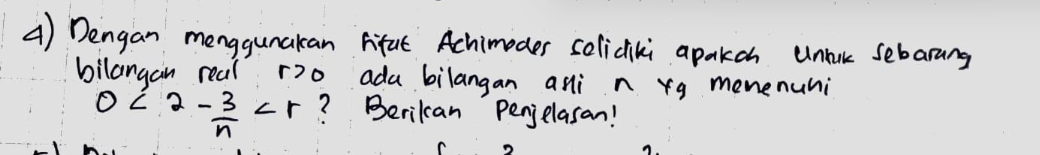 4) Dengan menggunakan sifat Achimedes selidiki apakah untuk sebarang
bilangan real r>0 ada bilangan asli n yg memenuhi
0 < 2 - 3/n < r ? Berikan Penjelasan!